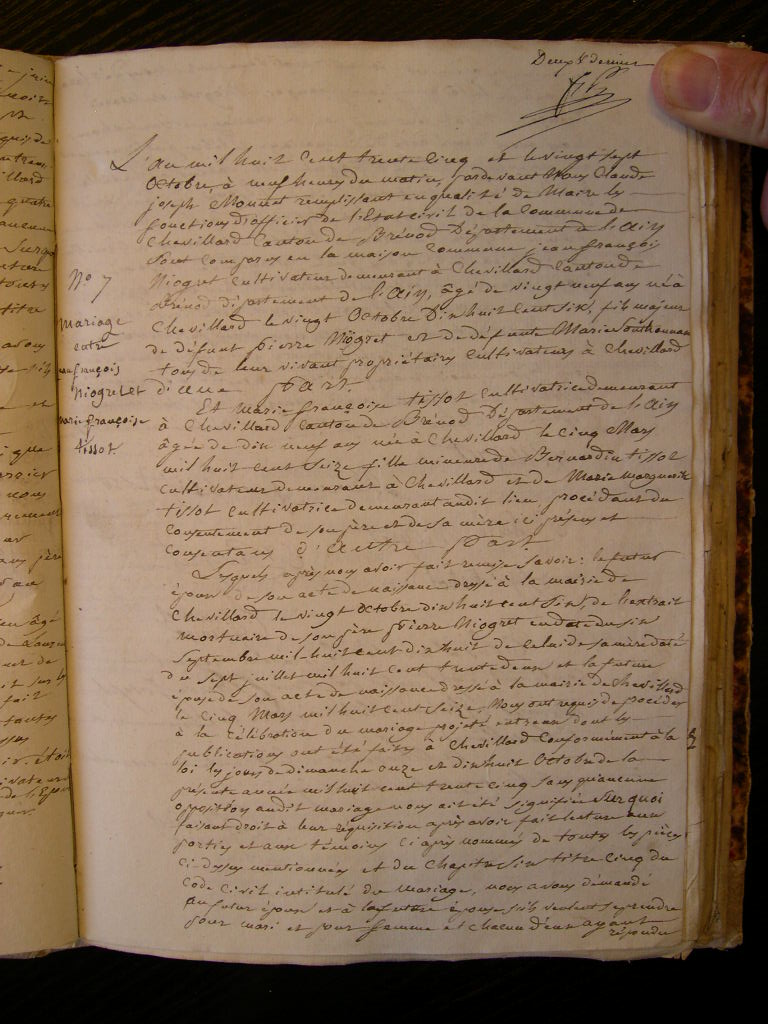 Deux & dernier
L'an mil huit cent trente cinq et le vingt sept
Octobre, à neuf heures du matin, pardevant Nous Claude
joseph Monnet remplissant en qualité de Maire les
fonctions d'officier de l'Etat civil de la Commune de
Chevillard Canton de Brénod Département de l'ain
sont comparus en la maison Commune jean françois
Niogret Cultivateur demeurant à Chevillard Canton de
Brénod département de l'ain, âgé de vingt neuf ans né à
Chevillard le vingt Octobre Dix huit cent six, fils majeur
de défunt pierre Niogret et de défunte Marie
tous de leur vivant propriétaires cultivateurs à Chevillard
d'une part.
No 7
Mariage
entre
jean françois
Niogret et
marie françoise
tissot
Et marie françoise tissot Cultivatrice demeurant
à Chevillard Canton de Brénod Département de l'ain
âgée de dix neuf ans née à Chevillard le cinq Mars
mil huit cent seize fille mineure de Bernardin tissot
cultivateur demeurant à Chevillard et de Marie Marguerite
tissot Cultivatrice demeurant audit lieu, procédant du
Consentement de son père et de sa mère ici présens et
Consentans d'autre part.
Lesquels après nous avoir fait remise savoir : le futur
époux de son acte de naissance dressé à la mairie de
Chevillard le vingt Octobre dix huit cent six, de l'extrait
mortuaire de son père Pierre Niogret en date du six
Septembre mil huit cent dix huit de celui de sa mère daté
du sept juillet mil huit cent trente deux et la future
épouse de son acte de naissance dressé à la mairie de Chevillard
le cinq Mars mil huit cent seize, Nous ont requis de procéder
à la célébration du mariage projeté entr'eux dont les
publications ont été faites à Chevillard Conformément à la
loi les jours de dimanche onze et dix huit Octobre de la
présente année mil huit cent trente cinq sans qu'aucune
opposition audit mariage nous ait été signifiée Surquoi
faisant droit à leur réquisition après avoir fait lecture aux
parties et aux témoins ci après nommés de toutes les pièces
ci-dessus mentionnées et du Chapitre six titre cinq du
Code Civil intitulé du Mariage, nous avons démandé
au futur époux et à la future épouse s'ils veulent se prendre
pour mari et pour femme et chacun d'eux ayant
répondu